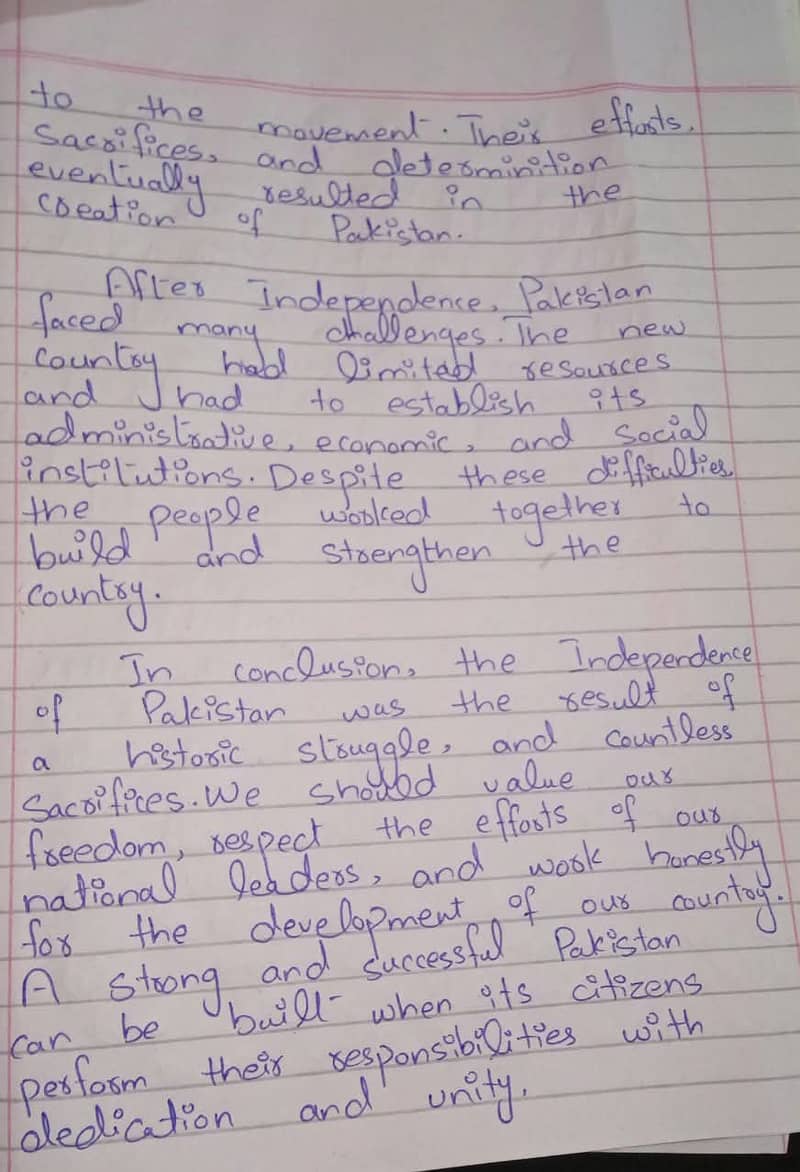 to the movement. Their efforts,
Sacrifices, and determinition
eventually resulted in the
creation of Pakistan.
After Independence, Pakistan
faced many challenges. The new
country had limited resources
and had to establish its
administrative, economic, and social
institutions. Despite these difficulties
the people worked together to
build and strengthen the
country.
In conclusion, the Independence
of Pakistan was the result of
a historic struggle, and countless
Sacrifices. We should value our
freedom, respect the efforts of our
national leaders, and work honestly
for the development of our country.
A strong and successful Pakistan
can be built when its citizens
perform their responsibilities with
dedication and unity.